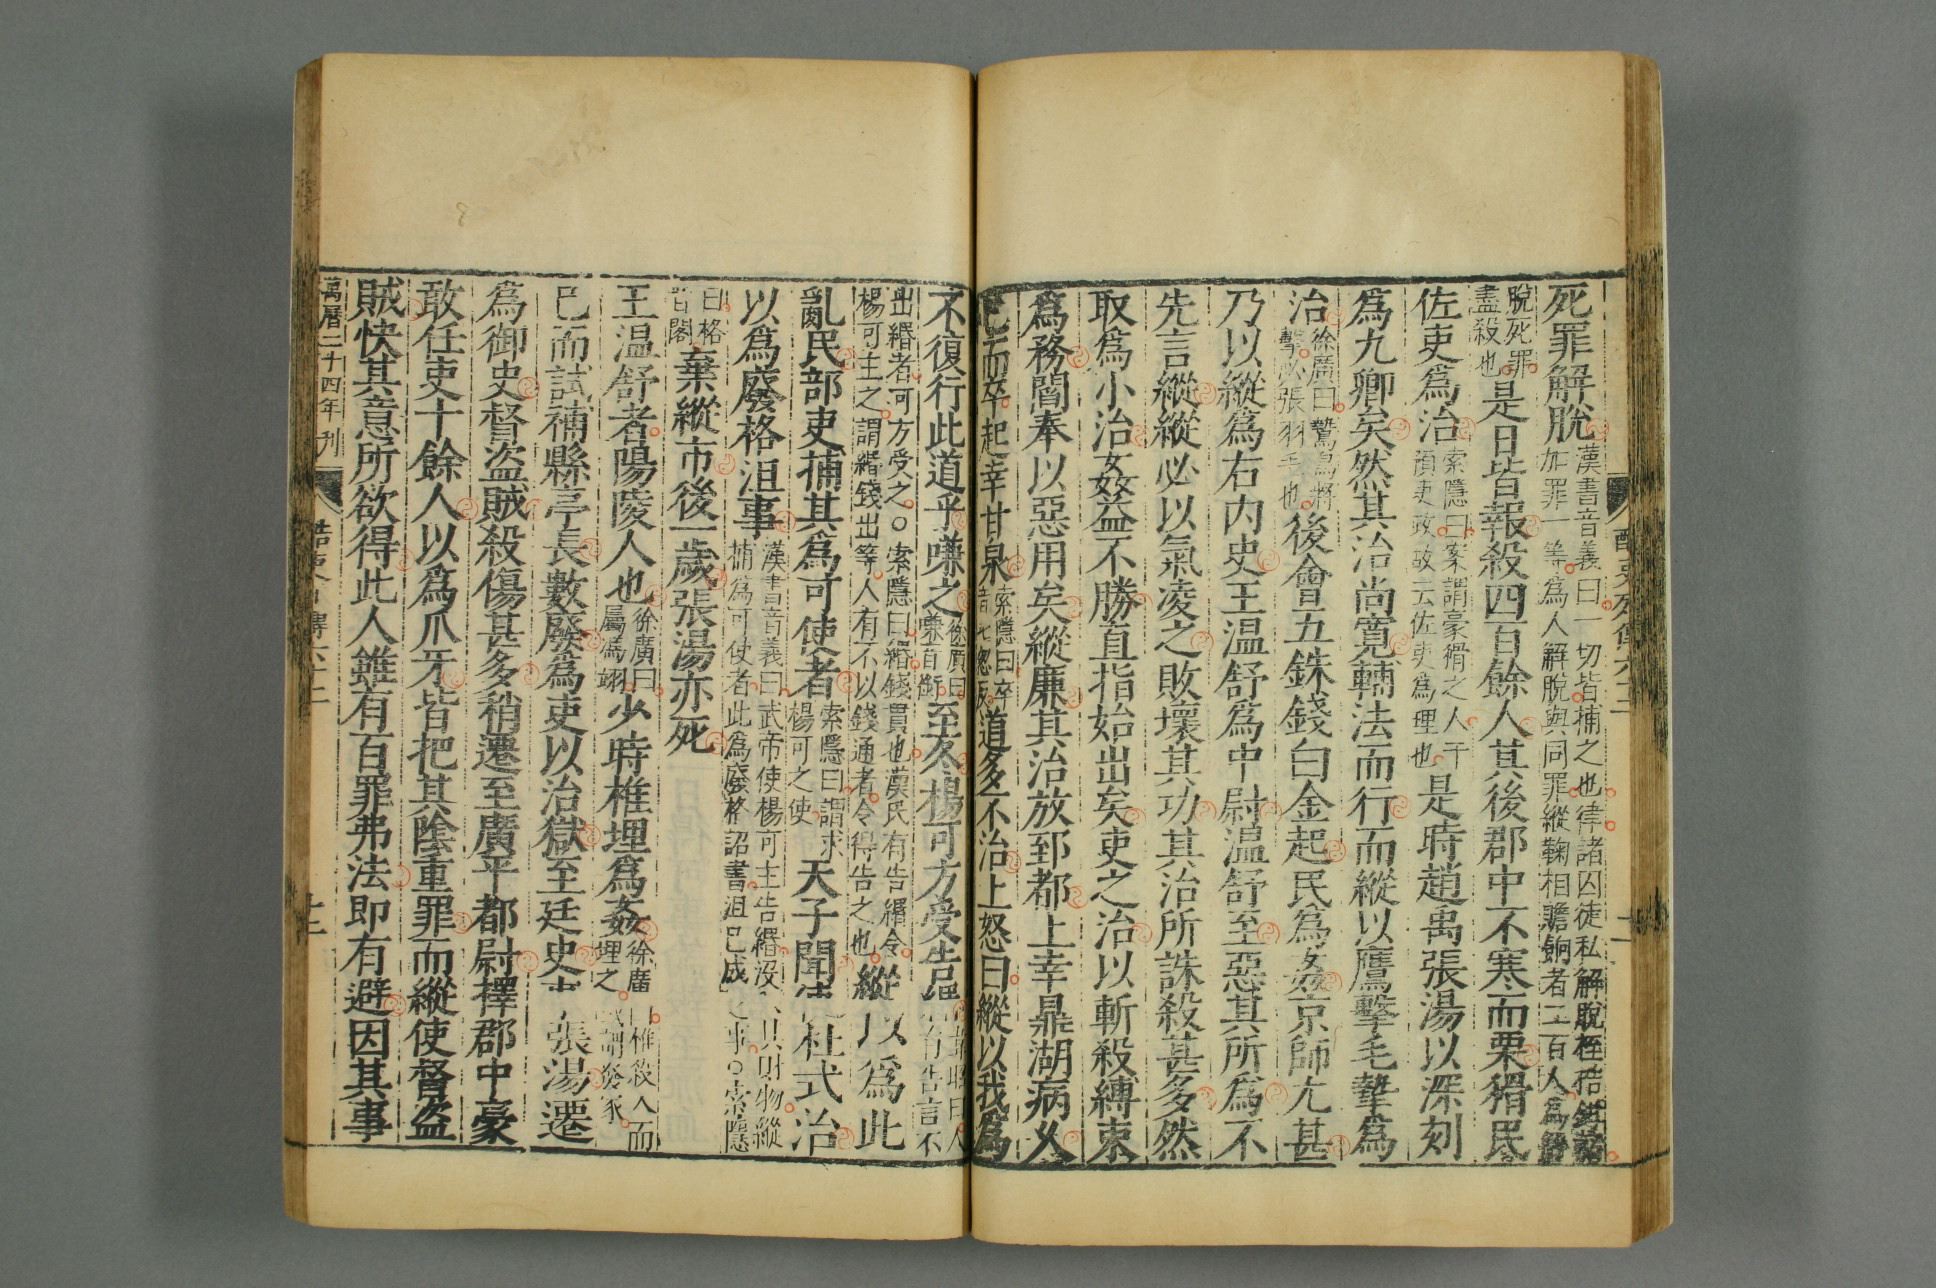 酷吏列傳六十二
十一
死罪解脫漢書音義曰一切皆捕之也律諸囚徒私解脫桎梏鉗赭加罪一等爲人解脫與同罪縱鞠相贍餉者二百人爲解
脫死罪盡殺也是日皆報殺四百餘人其後郡中不寒而栗猾民
佐吏爲治索隱曰案謂豪猾之人干預吏政故云佐吏爲理也是時趙禹張湯以深刻
爲九卿矣然其治尚寛輔法而行而縱以鷹擊毛摯爲
治徐廣曰鷙鳥將擊必張羽毛也後會五銖錢白金起民爲姦京師尤甚
乃以縱爲右内史王温舒爲中尉温舒至惡其所爲不
先言縱縱必以氣凌之敗壞其功其治所誅殺甚多然
取爲小治姦益不勝直指始出矣吏之治以斬殺縛束
爲務閻奉以惡用矣縱廉其治放郅都上幸鼎湖病久
已而卒起幸甘泉索隱曰卒音七忽反道多不治上怒曰縱以我爲
不復行此道乎嗛之徐廣曰嗛音銜至冬楊可方受告緡人有告言不
出緡者可方受之○索隱曰緡錢貫也漢氏有告緡令楊可主之謂緡錢出等人有不以錢通者令得告之也縱以爲此
亂民部吏捕其爲可使者索隱曰謂求楊可之使天子聞使杜式治
以爲廢格沮事漢書音義曰武帝使楊可主告緡沒入其財物縱捕爲可使者此爲廢格詔書沮已成之事○索隱
曰格音閣棄縱市後一歲張湯亦死
王温舒者陽陵人也徐廣曰屬馮翊少時椎埋爲姦徐廣曰椎殺人而埋之或謂發冢
已而試補縣亭長數廢爲吏以治獄至廷史事張湯遷
爲御史督盗賊殺傷甚多稍遷至廣平都尉擇郡中豪
敢任吏十餘人以爲爪牙皆把其隂重罪而縱使督盗
賊快其意所欲得此人雖有百罪弗法即有避因其事
萬曆二十四年刊
酷吏列傳六十二
十二